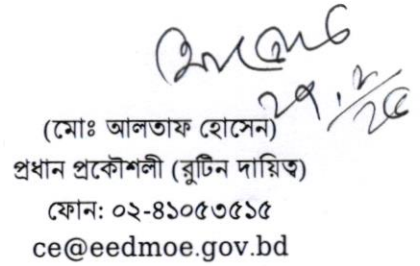 (মোঃ আলতাফ হোসেন)
প্রধান প্রকৌশলী (রুটিন দায়িত্ব)
ফোন: ০২-৪১০৫৩৫১৫
ce@eedmoe.gov.bd